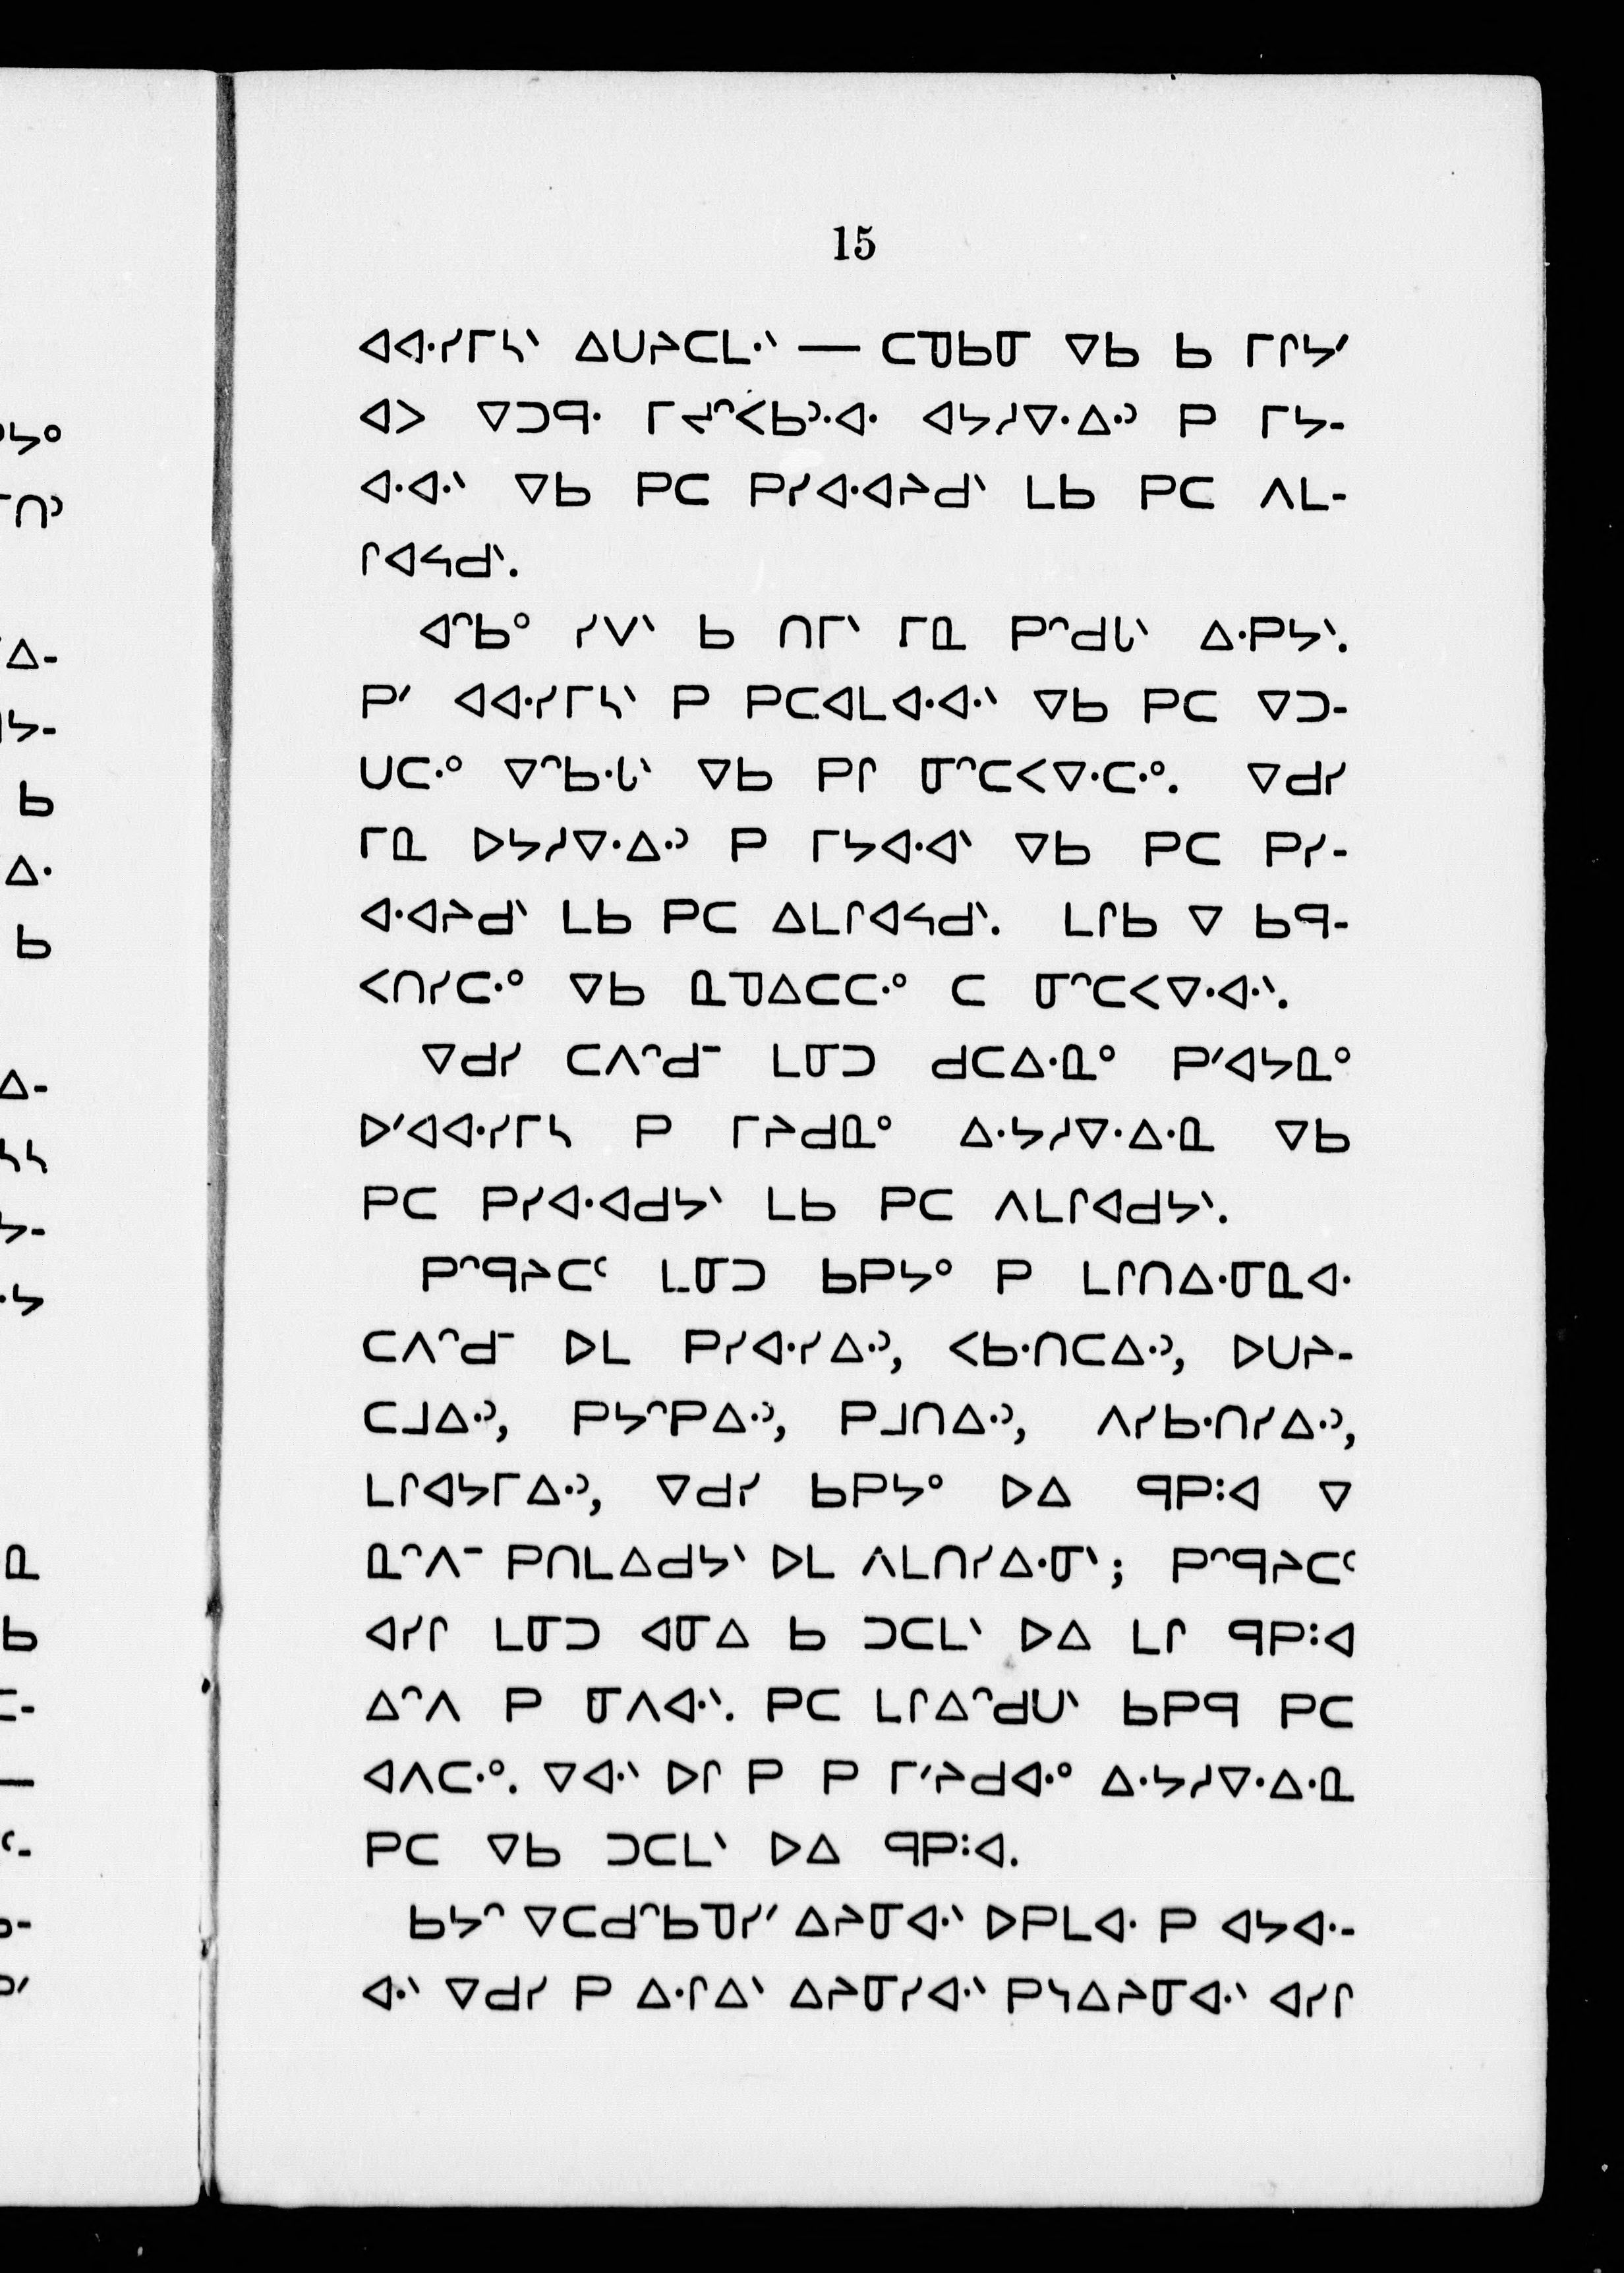 15
ᐊᐊᐧᓯᒥᓴᐠ ᐃᑌᔨᑕᒪᐧᐠ — ᑕᑯᑲᓂ ᐁᑲ ᑲ ᒥᒋᔭᐟ
ᐊᐳ ᐁᑐᑫᐧ ᒥᔪᐢᐸᑲᐣᐧᐊᐧ ᐊᔭᓱᐁᐧᐃᐧᐣ ᑭ ᒥᔭ-
ᐊᐧᐊᐧᐠ ᐁᑲ ᑭᑕ ᑭᓯᐊᐧᐊᔨᑯᐠ ᒪᑲ ᑭᑕ ᐱᒪ-
ᒋᐊᔦᑯᐠ.
ᐊᐢᑲᐤ ᓯᐯᐠ ᑲ ᑎᒥᐠ ᒥᓇ ᑭᐢᑯᒐᐠ ᐃᐧᑭᔭᐠ.
ᑭᐟ ᐊᐊᐧᓯᒥᓴᐠ ᑭ ᑭᑕᐊᒪᐊᐧᐊᐧᐠ ᐁᑲ ᑭᑕ ᐁᑐ-
ᑌᑕᐧᐤ ᐁᐢᑲᐧᒐᐠ ᐁᑲ ᑭᒋ ᓂᐢᑕᐸᐁᐧᑕᐧᐤ. ᐁᑯᓯ
ᒥᓇ ᐅᔭᓱᐁᐧᐃᐧᐣ ᑭ ᒥᔭᐊᐧᐊᐠ ᐁᑲ ᑭᑕ ᑭᓯ-
ᐊᐧᐊᔨᑯᐠ ᒪᑲ ᑭᑕ ᐃᒪᒋᐊᔦᑯᐠ. ᒪᒋᑲ ᐁ ᑲᑫ-
ᐸᑎᓯᑕᐧᐤ ᐁᑲ ᓇᑯᐃᑕᑕᐧᐤ ᑕ ᓂᐢᑕᐸᐁᐧᐊᐧᐠ.
ᐁᑯᓯ ᑕᐱᐢᑯᐨ ᒪᓂᑐ ᑯᑕᐃᐧᓇᐤ ᑭᐟᐊᔭᓇᐤ
ᐅᐟᐊᐊᐧᓯᒥᓴ ᑭ ᒥᔨᑯᓇᐤ ᐃᐧᔭᓱᐁᐧᐃᐧᓇ ᐁᑲ
ᑭᑕ ᑭᓯᐊᐧᐊᑯᔭᐠ ᒪᑲ ᑭᑕ ᐱᒪᒋᐊᑯᔭᐠ.
ᑭᐢᑫᔨᑕᑦ ᒪᓂᑐ ᑲᑭᔭᐤ ᑭ ᒪᒋᑎᐃᐧᓂᓇᐊᐧ
ᑕᐱᐢᑯᐨ ᐅᒪ ᑭᓯᐊᐧᓯᐃᐧᐣ, ᐸᑲᐧᑎᑕᐃᐧᐣ, ᐅᑌᔨ-
ᑕᒧᐃᐧᐣ, ᑭᔭᐢᑭᐃᐧᐣ, ᑭᒧᑎᐃᐧᐣ, ᐱᓯᑲᐧᑎᓯᐃᐧᐣ,
ᒪᒋᐊᔭᒥᐃᐧᐣ, ᐁᑯᓯ ᑲᑭᔭᐤ ᐅᐃ ᑫᑭ᛬ᐊ ᐁ
ᓇᐢᐱᐨ ᑭᑎᒪᐃᑯᔭᐠ ᐅᒪ ᐱᒪᑎᓯᐃᐧᓂᐠ; ᑭᐢᑫᔨᑕᑦ
ᐊᓯᒋ ᒪᓂᑐ ᐊᓂᐃ ᑲ ᑐᑕᒪᐠ ᐅᐃ ᒪᒋ ᑫᑭ᛬ᐊ
ᐃᐢᐱ ᑭ ᓂᐱᐊᐧᐠ. ᑭᑕ ᒪᒋᐃᐢᑯᑌᐠ ᑲᑭᑫ ᑭᑕ
ᐊᐱᑕᐧᐤ. ᐁᐊᐧᐠ ᐅᒋ ᑭ ᑭ ᒥᐟᔨᑯᐊᐧᐤ ᐃᐧᔭᓱᐁᐧᐃᐧᓇ
ᑭᑕ ᐁᑲ ᑐᑕᒪᐠ ᐅᐃ ᑫᑭ᛬ᐊ.
ᑲᔭᐢ ᐁᑕᑯᐢᑲᑯᓯᐟ ᐃᔨᓂᐊᐧᐠ ᐅᑭᒪᐊᐧ ᑭ ᐊᔭᐊᐧ-
ᐊᐧᐠ ᐁᑯᓯ ᑭ ᐃᐧᒋᐃᐠ ᐃᔨᓂᓯᐊᐧᐠ ᑭᓭᐃᔨᓂᐊᐧᐠ ᐊᓯᒋ